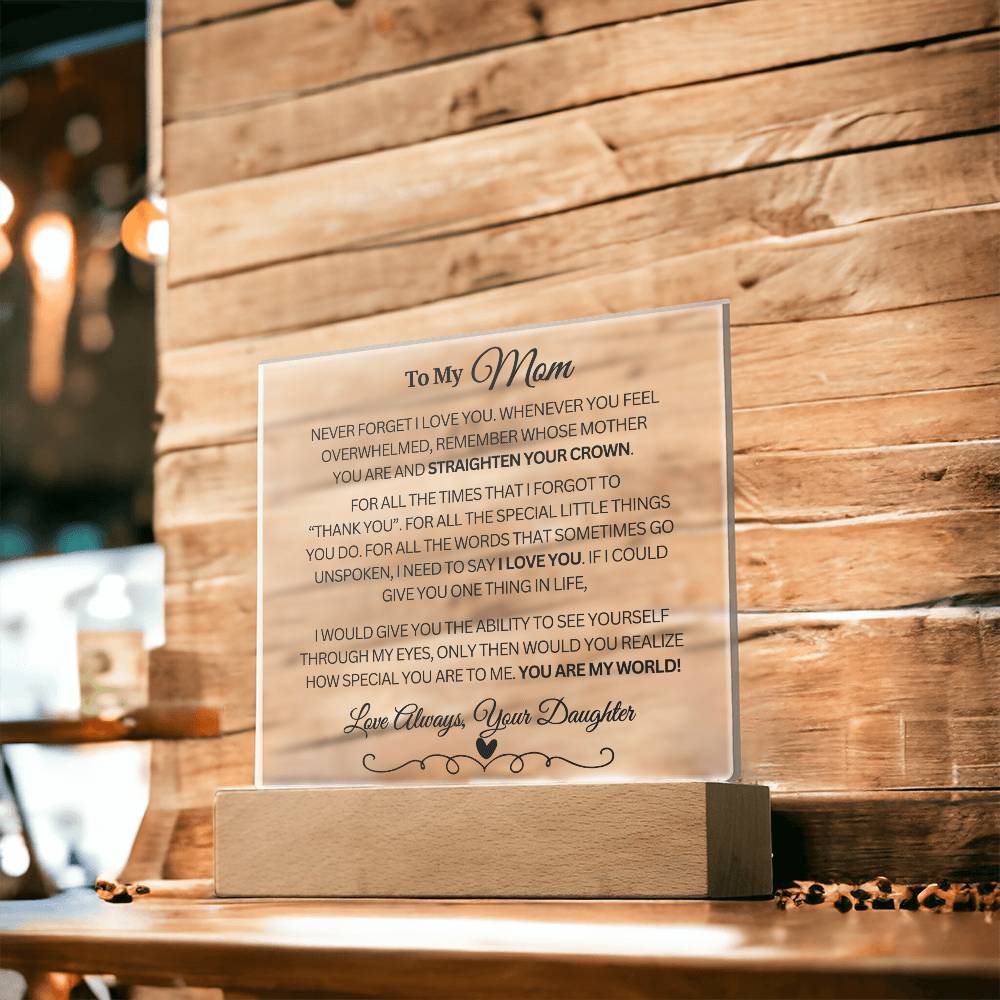 To My Mom
NEVER FORGET I LOVE YOU. WHENEVER YOU FEEL
OVERWHELMED, REMEMBER WHOSE MOTHER
YOU ARE AND STRAIGHTEN YOUR CROWN.
FOR ALL THE TIMES THAT I FORGOT TO
“THANK YOU”. FOR ALL THE SPECIAL LITTLE THINGS
YOU DO. FOR ALL THE WORDS THAT SOMETIMES GO
UNSPOKEN, I NEED TO SAY I LOVE YOU. IF I COULD
GIVE YOU ONE THING IN LIFE,
I WOULD GIVE YOU THE ABILITY TO SEE YOURSELF
THROUGH MY EYES, ONLY THEN WOULD YOU REALIZE
HOW SPECIAL YOU ARE TO ME. YOU ARE MY WORLD!
Love Always, Your Daughter